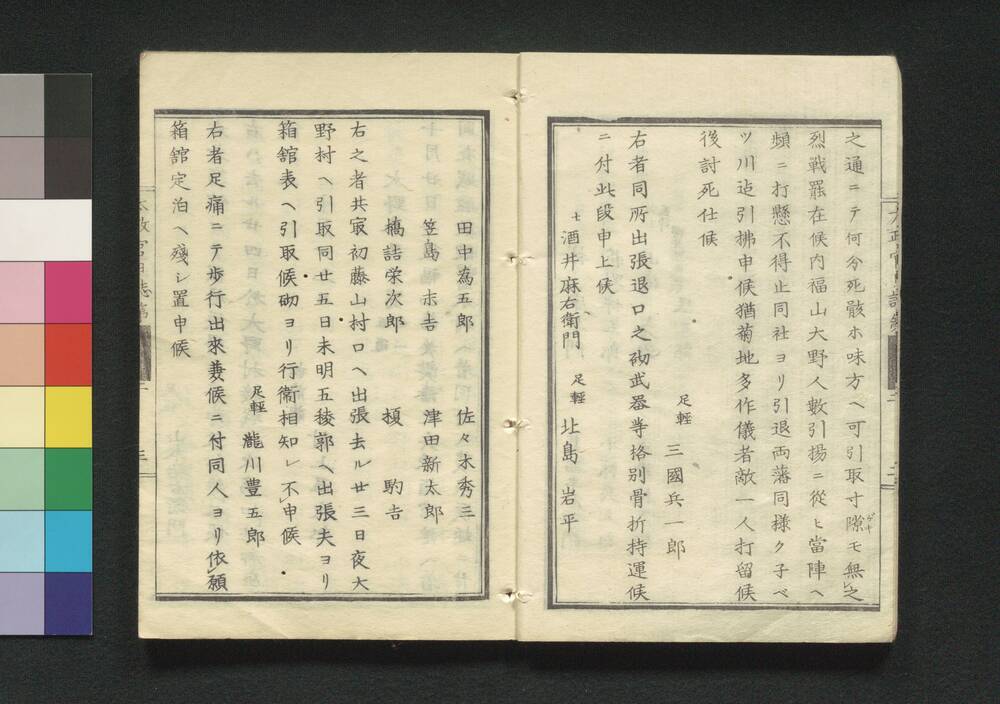 之通ニテ何分死骸ホ味方ヘ可引取寸隙モ無レ之
ゲキ
烈戦罷在候内福山大野人數引揚ニ從ヒ當陣ヘ
頻ニ打懸不得止同社ヨリ引退両藩同様クネベ
ツ川迠引拂申候猶菊地多作儀者敵一人打留候
後討死仕候
足輕 三國兵一郎
右者同所出張退口之砌武器等格別骨折持運候
ニ付此段申上候
七 酒井麻右衛門 足輕 北島 岩平
田中為五郎 佐々木秀三
笠島 ホ𠮷 津田新太郎
橋詰栄次郎 榎 駒𠮷
右之者共㝡初藤山村口ヘ出張去ル廿三日夜大
野村ヘ引取同廿五日未明五稜郭ヘ出張夫ヨリ
箱舘表ヘ引取候砌ヨリ行衛相知レ不申候
足輕 瀧川豊五郎
右者足痛ニテ歩行出來兼候ニ付同人ヨリ依願
箱舘定泊ヘ殘シ置申候
太政官日誌